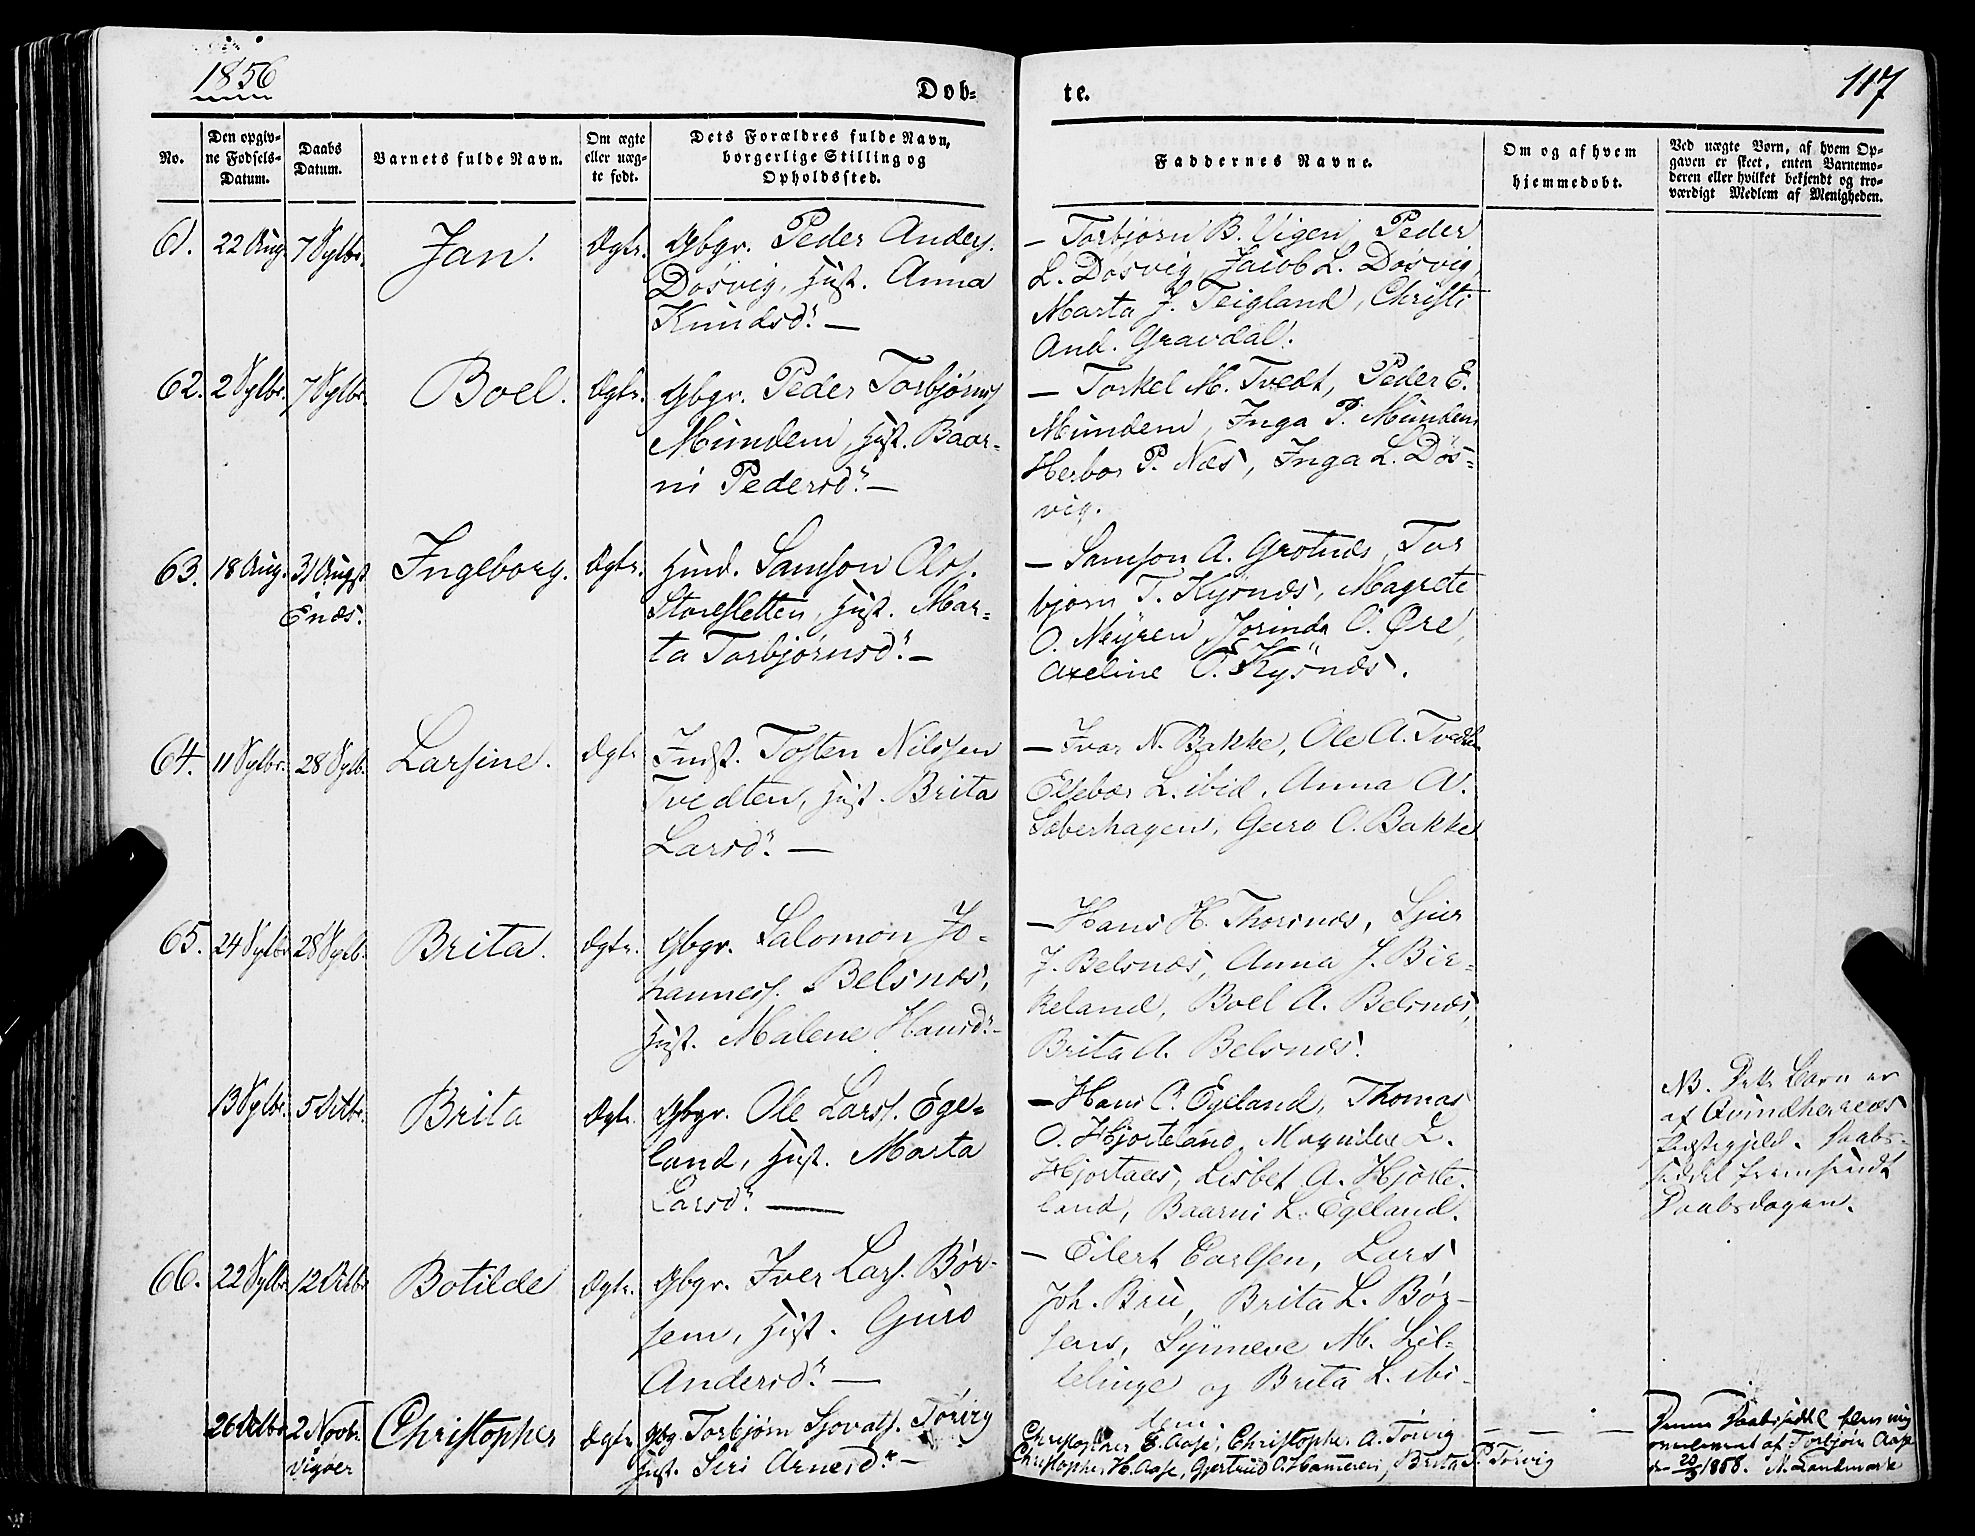 1856
Døb-
te.
117
No.
Den opgiv-
ne Fødsels-
Datum.
Daabs
Datum.
Barnets fulde Navn.
Om ægte
eller uæg-
te født.
Dets Forældres fulde Navn,
borgerlige Stilling og
Opholdssted.
Faddernes Navne.
Om og af hvem
hjemmedøbt.
Ved uægte Børn, af hvem Op-
gaven er skeet, enten Barnemo-
deren eller hvilket bekjendt og tro-
værdigt Medlem af Menigheden.
61. 22 Aug. 7 Sptbr. Jan. Ægte. Gbgr. Peder Anders.
Døsvig, Hust. Anna
Knudsd. —
— Torbjørn B. Vigen, Peder
L. Døsvig, Jacob L. Døsvig,
Marta J. Teigland, Christi
And. Gravdal.
62. 2 Sptbr. 7 Sptbr. Boel. Ægte. Gbgr. Peder Torbjørns
Mundem, Hust. Baar-
ni Pedersd. —
— Torkel M. Tvedt, Peder E.
Mundem, Inga P. Mundem
Herbor P. Næs, Inga L. Døs-
vig.
63. 18 Aug. 31 Augst Ingeborg. Ægte. Hmd. Samson Ols.
Enæs.
Storesletten, Hust. Mar-
ta Torbjørnsd. —
— Samson A. Grotnæs, Tor
bjørn T. Kysnæs, Magrete
O. Myren, Jorinda O. Øre,
Axeline O. Kysnæs.
64. 11 Sptbr. 28 Sptb. Larsine. Ægte Indst. Tosten Nilssen
Tvedten, Hust. Brita
Larsd. —
— Ivar N. Bakke, Ole A. Tvedten
Elsebær L. ibid, Anna A.
Sæberhagen, Guro O. Bakke
65. 24 Sptbr 28 Sptb. Brita. Ægte. Gbgr. Salomon Jo-
hanness. Belsnæs,
Hust. Malene Hansd. —
— Hans H. Thorsnæs, Sjur
J. Belsnæs, Anna J. Bir-
keland, Boel A. Belsnæs,
Brita A. Belsnæs.
13 Sptbr. 5 Octbr. Brita Ægte. Gbgr. Ole Larss. Ege-
land, Hust. Marta
Larsd. —
— Hans O. Egeland, Thomas
O. Hjorteland, Magnilde L.
Hjortaas, Lisbet A. Hjorte-
land, Baarni L. Egeland.
NB. Dette Barn er
af Qvindherreds
Præstegjeld. Daabs-
seddel fremsendt
Daabsdagen.
66. 22 Sptbr 12 Octbr Botilde Ægte. Gbgr. Iver Lars. Bør-
sem, Hust. Guro
Andersd. —
— Eilert Carlsen, Lars
Joh. Bru, Brita L. Bør-
sem, Synneve M. Lil-
lelinge og Brita L. ibi-
dem.
26 Octbr 2 Novbr. Christopher Ægte Gbg Torbjørn Sjovats. Torvig
Vigøer
Hust. Siri Arnesd. —
Christopher E. Aase, Christophe. A. Torvig — — —
Christophe. H. Aase, Gjertrud O. Hammeren, Brita P. Torvig
Denne Daabsseddel blev mig
Torbjørn Aase
1858. N. Landmark